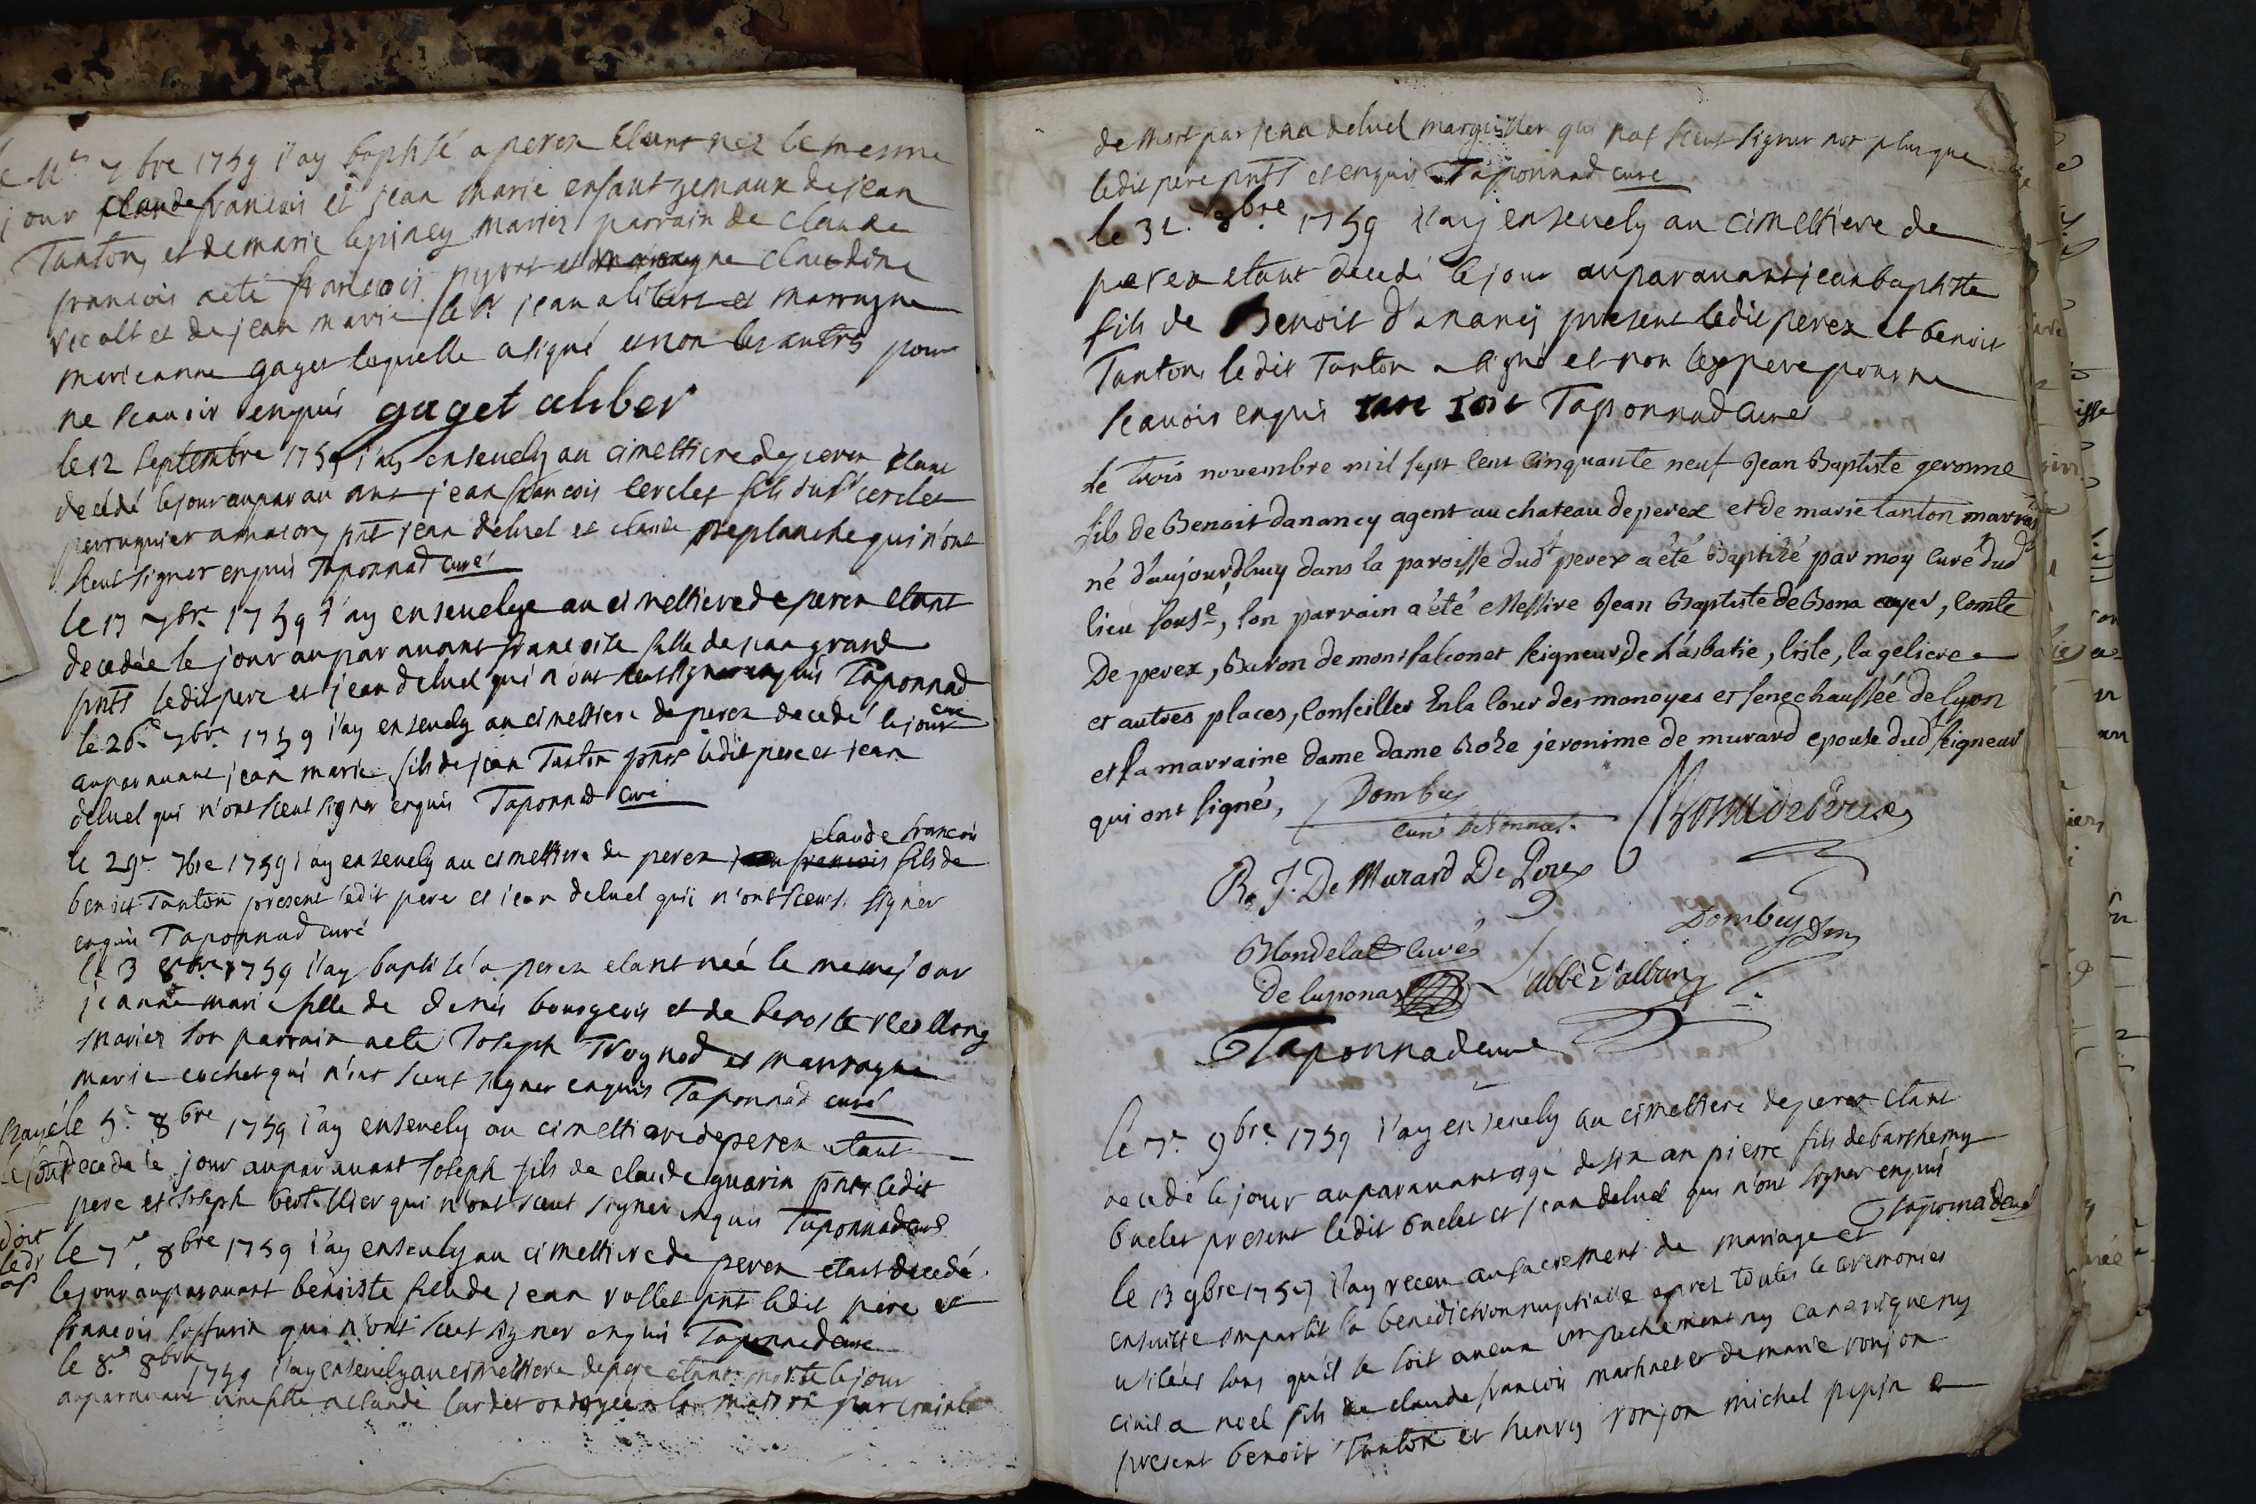 le 11e 7bre 1759 j'ay baptisé a perex etant nez le mesme
jour claude francois et jean marie enfant gemaux de jean
Tanton et de marie lepiney mariez parrain de claude
francois a eté francois pyvat et marragne claudine
recolt et de jean marie le Sr jean aliber et marragne
marieanne gaget lequelle a signé et non les autres pour
ne scauoir enquis gaget aliber
le 12 septembre 1759 j'ay enseuely au cimettiere de perex etant
decédé le jour auparauant jean francois cerclet fils du Sr cerclet
perruquier a macon, pnt jean deluel et claude preplanche qui n'ont
sceut signer enquis Taponnad curé
le 17 7bre 1759 j'ay enseuelye au cimettiere de perex etant
decedée le jour auparauant francoise fille de jean grand
pnts ledit pere et jean deluel qui n'ont sceut signer enquis Taponnad
curé
le 26e 7bre 1759 j'ay enseuely au cimettiere de perex decedé le jour
auparauant jean marie fils de jean Tanton pnts ledit pere et jean
deluel qui n'ont sceut signer enquis Taponnad curé
claude francois
le 29e 7bre 1759 j'ay enseuely au cimettiere de perex jean francois fils de
benoit Tanton present ledit pere et jean deluel qui n'ont sceut signer
enquis Taponnad curé
le 3 8bre 1759 j'ay baptisé a perex etant neé le meme jour
jeanne marie fille de denis bourgeois et de benoite
mariez son parrain a eté Joseph Trognod et marragne
marie cochet qui n'ont sceut signer enquis Taponnad curé
Rayé le 5e 8bre 1759 j'ay enseuely au cimettiere de perex etant
decede le jour auparauant Joseph fils de claude guarin pnts ledit
pere et Joseph berthillier qui n'ont sceut signer enquis Taponnad curé
le 7e 8bre 1759 j'ay enseuely au cimettiere de perex etant decedé
le jour auparauant benoiste fille de jean vollet pnt ledit pere et
francois soffurin qui n'ont sceut signer enquis Taponnad curé
le 8e 8bre 1759 j'ay enseuely au cimettiere de perex etant morte le jour
auparauant une fille a claude cardet ondoyée a la maison par crainte
de mort par jean deluel marguillier qui n'a sceut signer non plus que
ledit pere pnts et enquis Taponnad curé
le 31e 8bre 1759 j'ay enseuely au cimettiere de
perex etant decedé le jour auparauant jean baptiste
fils de Benoit d'anancy present ledit pere et benoit
Tanton ledit Tanton a signé et non le pere pour ne
scauoir enquis Taponnad curé
Le Trois novembre mil sept cent cinquante neuf Jean Baptiste geronme
fils de Benoit danancy agent au chateau de perex et de marie tanton mariés
né d'aujourd'huy dans la paroisse dudt perex a été Baptizé par moy curé dudt
lieu souse, son parrain a été Messire Jean Baptiste de Bona cuyer, comte
De perex, Baron de monsfalconet seigneur, de L'asbatie, lisle, la geliere
et autres places, conseiller En la cour des monoyes et senechaussée de lyon
et sa marraine dame dame Roze jeronime de murard epouse dudt seigneur
qui ont signés, Dombey
curé de vonnas. Bona de Perex
R. J. De Murard De Perex
Dombey
Blondelat curé
de luponas L'abbé d'alban
Taponnad curé
le 7e 9bre 1759 j'ay enseuely au cimettiere de perex etant
decedé le jour auparauant agé de six an pierre fils de barthemy
buelet present ledit buelet et jean deluel qui n'ont signer enquis
Taponnad curé
le 13 9bre 1759 j'ay receu au sacrement de mariage et
ensuitte impartit la benediction nuptialle aprez toutes le ceremonies
usitées sans qu'il se soit aucun impechement ny canonique ny
ciuil a noel fils de claude francois martinet et de marie ronjon
present benoit Tanton et henry ronjon michel pepin &